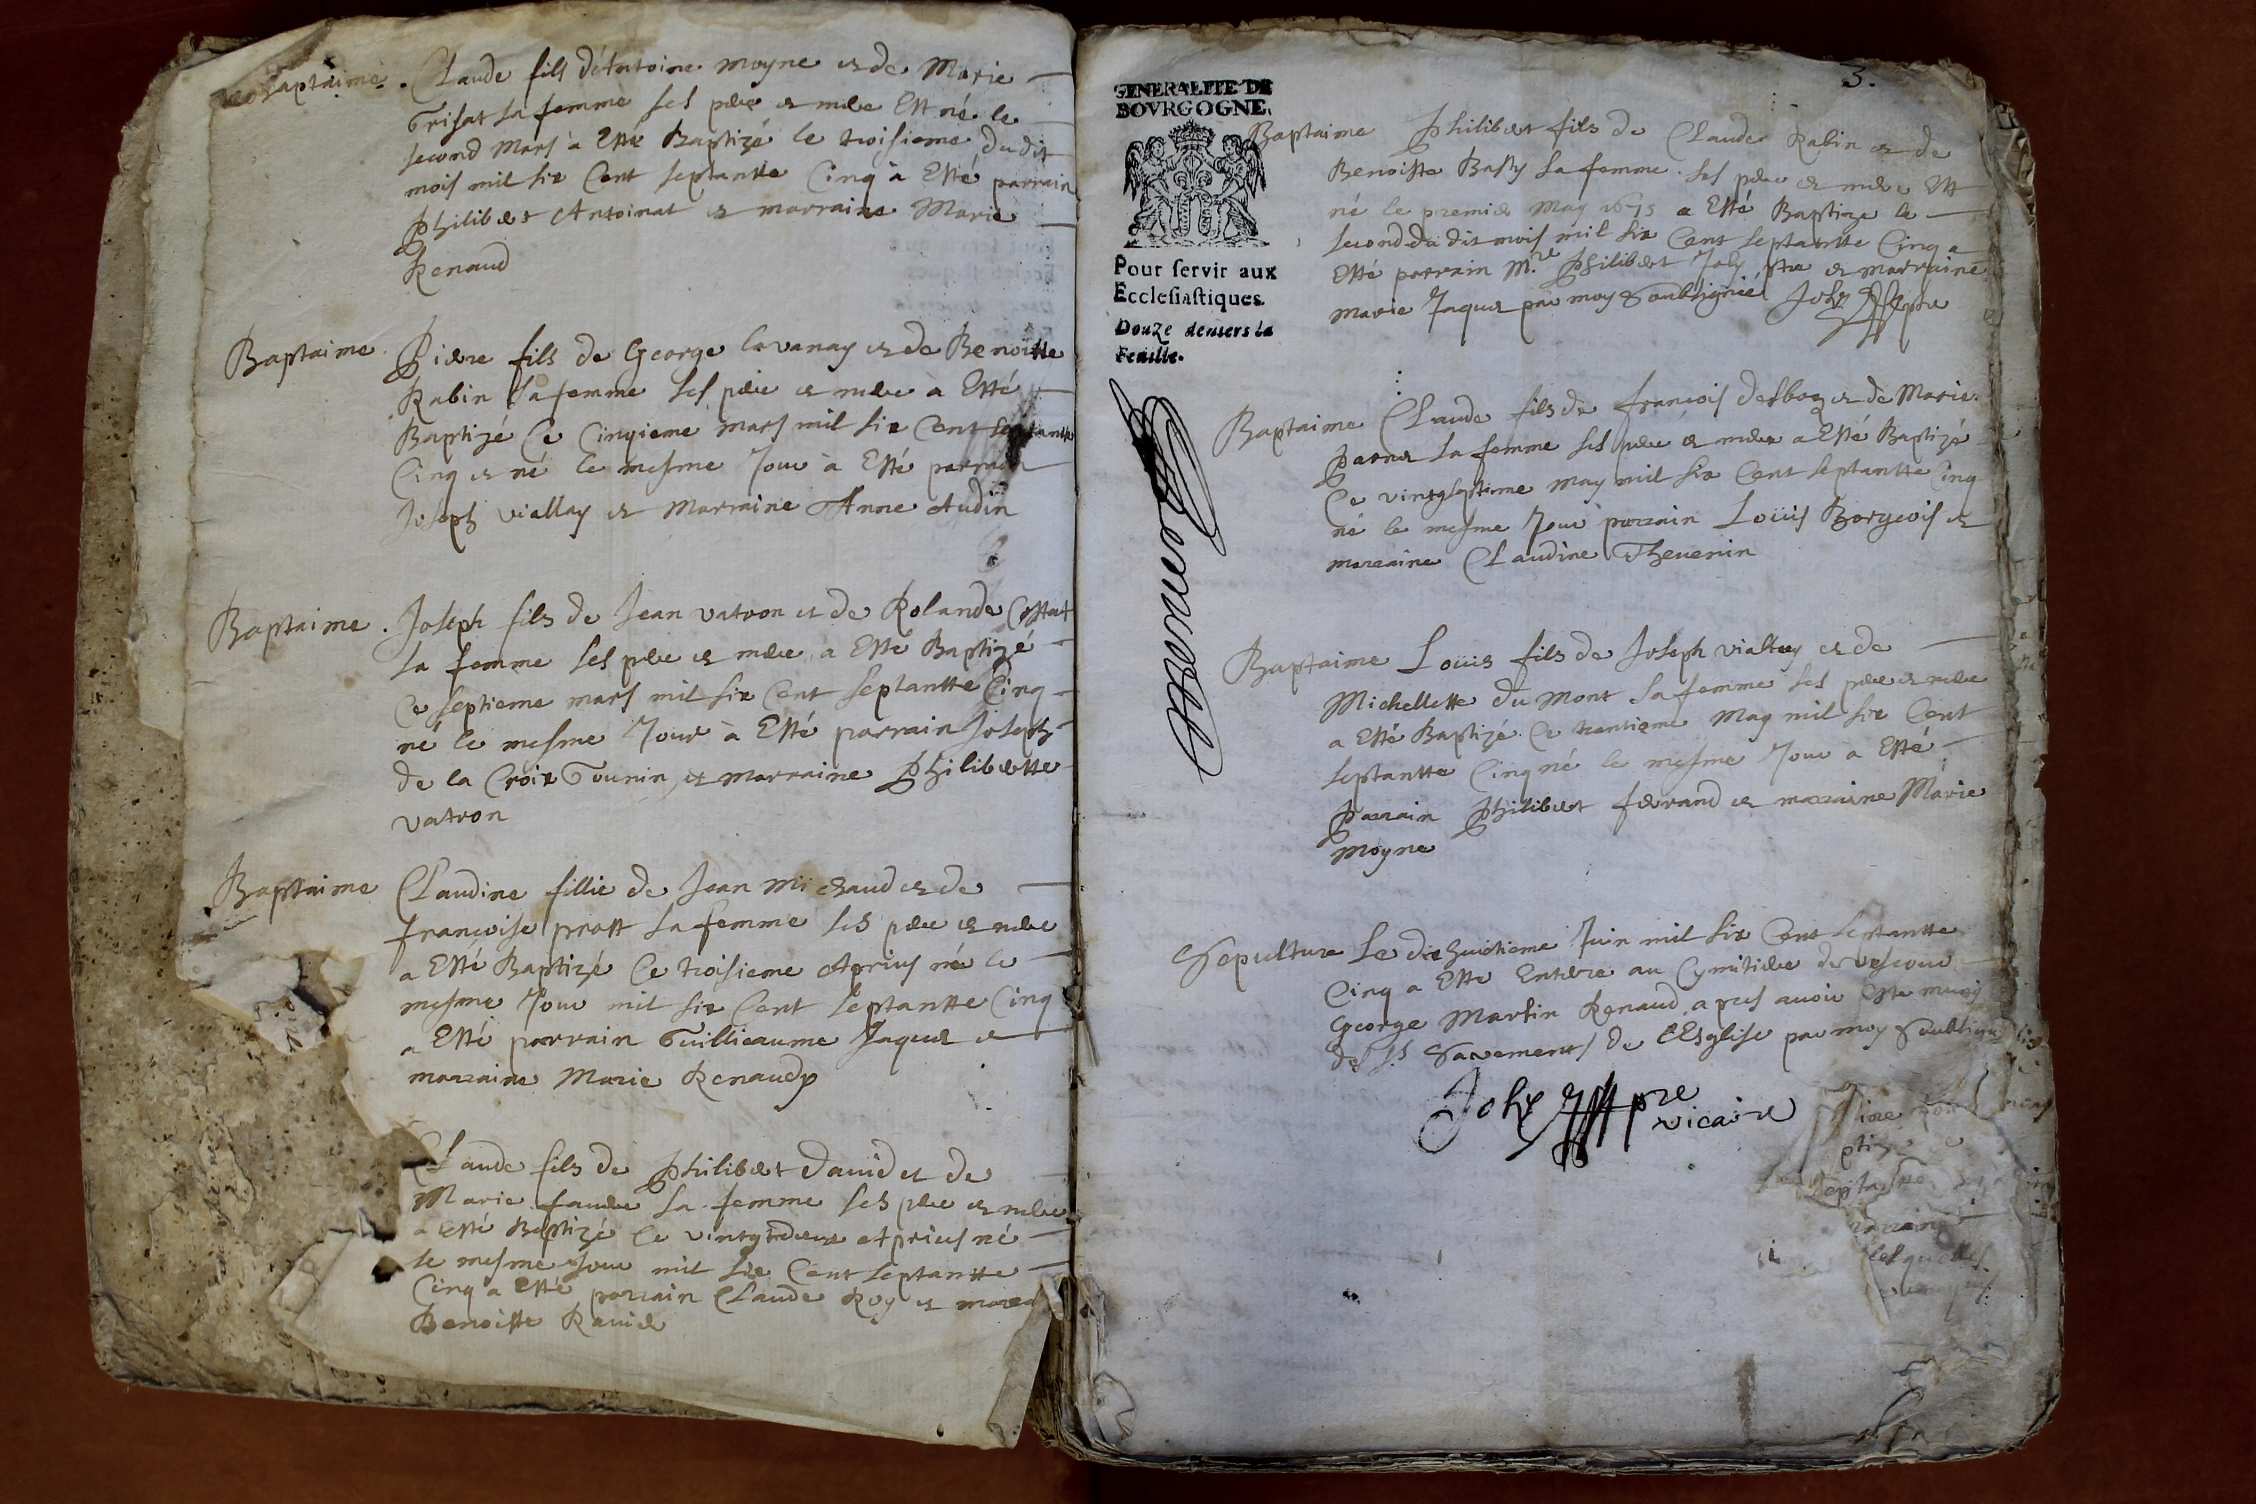 Baptaime. Claude fils d'Antoine moyne et de Marie
Grisat sa femme ses pere et mere Est né le
second Mars à Esté Baptizé le troisieme du dit
mois mil six Cent septantte Cinq à Esté parrain
Philibert Antoinat et marraine Marie
Renaud
Baptaime. Pierre fils de George lavanay et de Benoitte
Rabin sa femme ses pere et mere à Esté
Baptizé Ce Cinqieme mars mil six Cent septantte
Cinq et né le mesme Jour à Esté parrain
Joseph viallay et Marraine Anne Audin
Baptaime. Joseph fils de Jean vatron et de Rolande Costat
sa femme ses pere et mere a Esté Baptizé
Ce septieme mars mil six Cent septantte Cinq
né le mesme Jour à Esté parrain Joseph
de la Croix Tounin et marraine Philibertte
vatron
Baptaime Claudine fillie de Jean Michaud et de
françoise prost sa femme ses pere et mere
a Esté Baptizé Ce troisieme Aprius né le
mesme Jour mil six Cent septantte Cinq
a Esté parrain Guillieaume Jaques et
marraine Marie Renaud
Claude fils de Philibert David et de
Marie faure sa femme ses pere et mere
a Esté Baptizé Ce vingtdeux Aprius né
le mesme Jour mil six Cent septantte
Cinq a Esté parrain Claude Roy et
Benoitte Ravier
3.
GENERALITE DE
BOVRGOGNE.
Pour servir aux
Ecclesiastiques.
Douze deniers la
Feuille.
Baptaime Philibert fils de Claude Rabin et de
Benoitte Basty sa femme ses pere et mere Est
né le premier May 1675 a Esté Baptize le
second du dit mois mil six Cent septantte Cinq a
Esté parrain Mre Philibert Joly ptre et marraine
marie Jaques par moy Soubsigné Joly ptre
Baptaime Claude fils de françois desboz et de Marie
sa femme ses pere et mere a Esté Baptizé
Ce vingtseptieme may mil six Cent septantte Cinq
né le mesme Jour parrain Loüis Borgeois et
marraine Claudine Thevenin
Baptaime Loüis fils de Joseph viallay et de
Michellette du Mont sa femme ses pere et mere
a Esté Baptizé Ce trentieme May mil six Cent
septantte Cinq né le mesme Jour a Esté
Parrain Philibert ferrand et marraine Marie
Moyne
Sepulture Le dixhuictieme Juin mil six Cent septantte
Cinq a Esté Enterre au Cymitiere de
George Martin Renaud apres avoir Esté muny
des Ss Sacrements de l'Esglise par moy Soubsigné
Joly ptre
vicaire